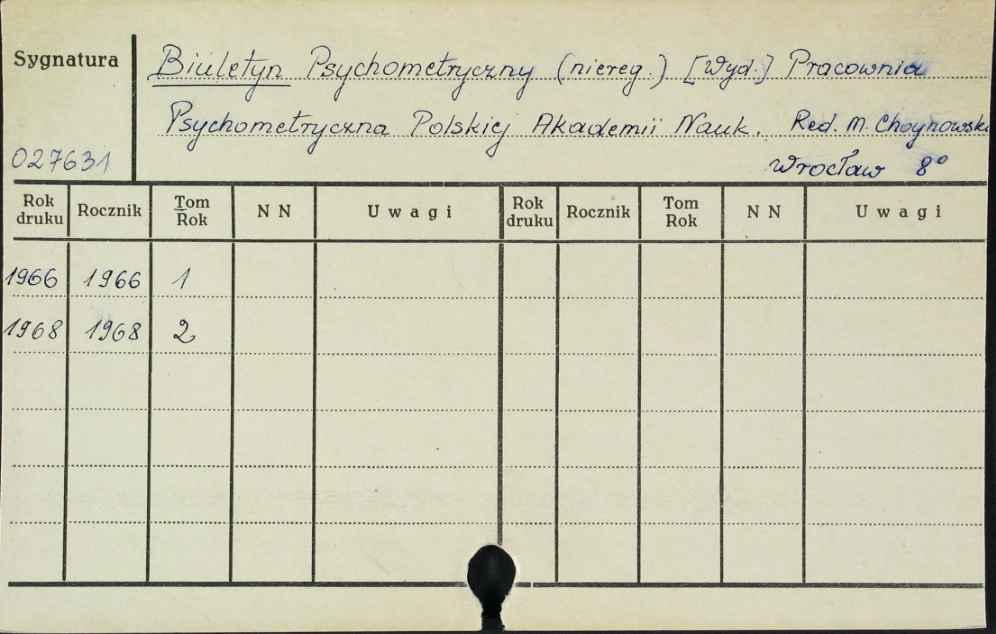 Sygnatura
Biuletyn Psychometryczny (niereg.) [Wyd.] Pracownia
Psychometryczna Polskiej Akademii Nauk. Red. M. Choynowski
027631
Wrocław 8°
Rok druku Rocznik Tom Rok N N Uwagi Rok druku Rocznik Tom Rok N N Uwagi
1966 1966 1
1968 1968 2